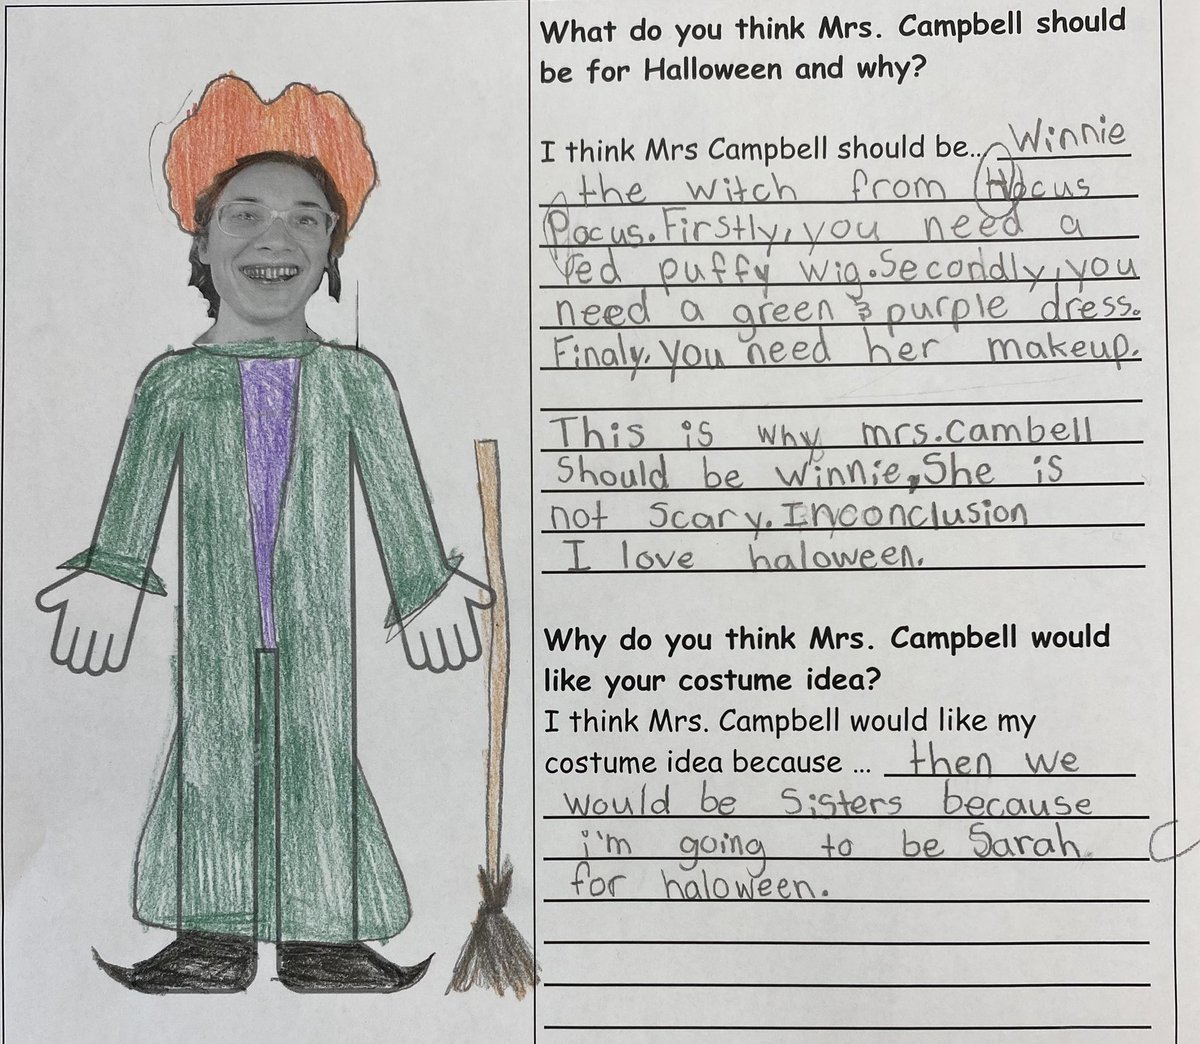 What do you think Mrs. Campbell should
be for Halloween and why?
I think Mrs Campbell should be... Winnie
the witch from Hocus
Pocus. Firstly, you need a
red puffy wig. Secondly, you
need a green & purple dress.
Finaly, you need her makeup.
This is why mrs. Cambell
Should be Winnie, She is
not scary. Inconclusion
I love haloween.
Why do you think Mrs. Campbell would
like your costume idea?
I think Mrs. Campbell would like my
costume idea because ... then we
would be sisters because
i'm going to be Sarah
for haloween.